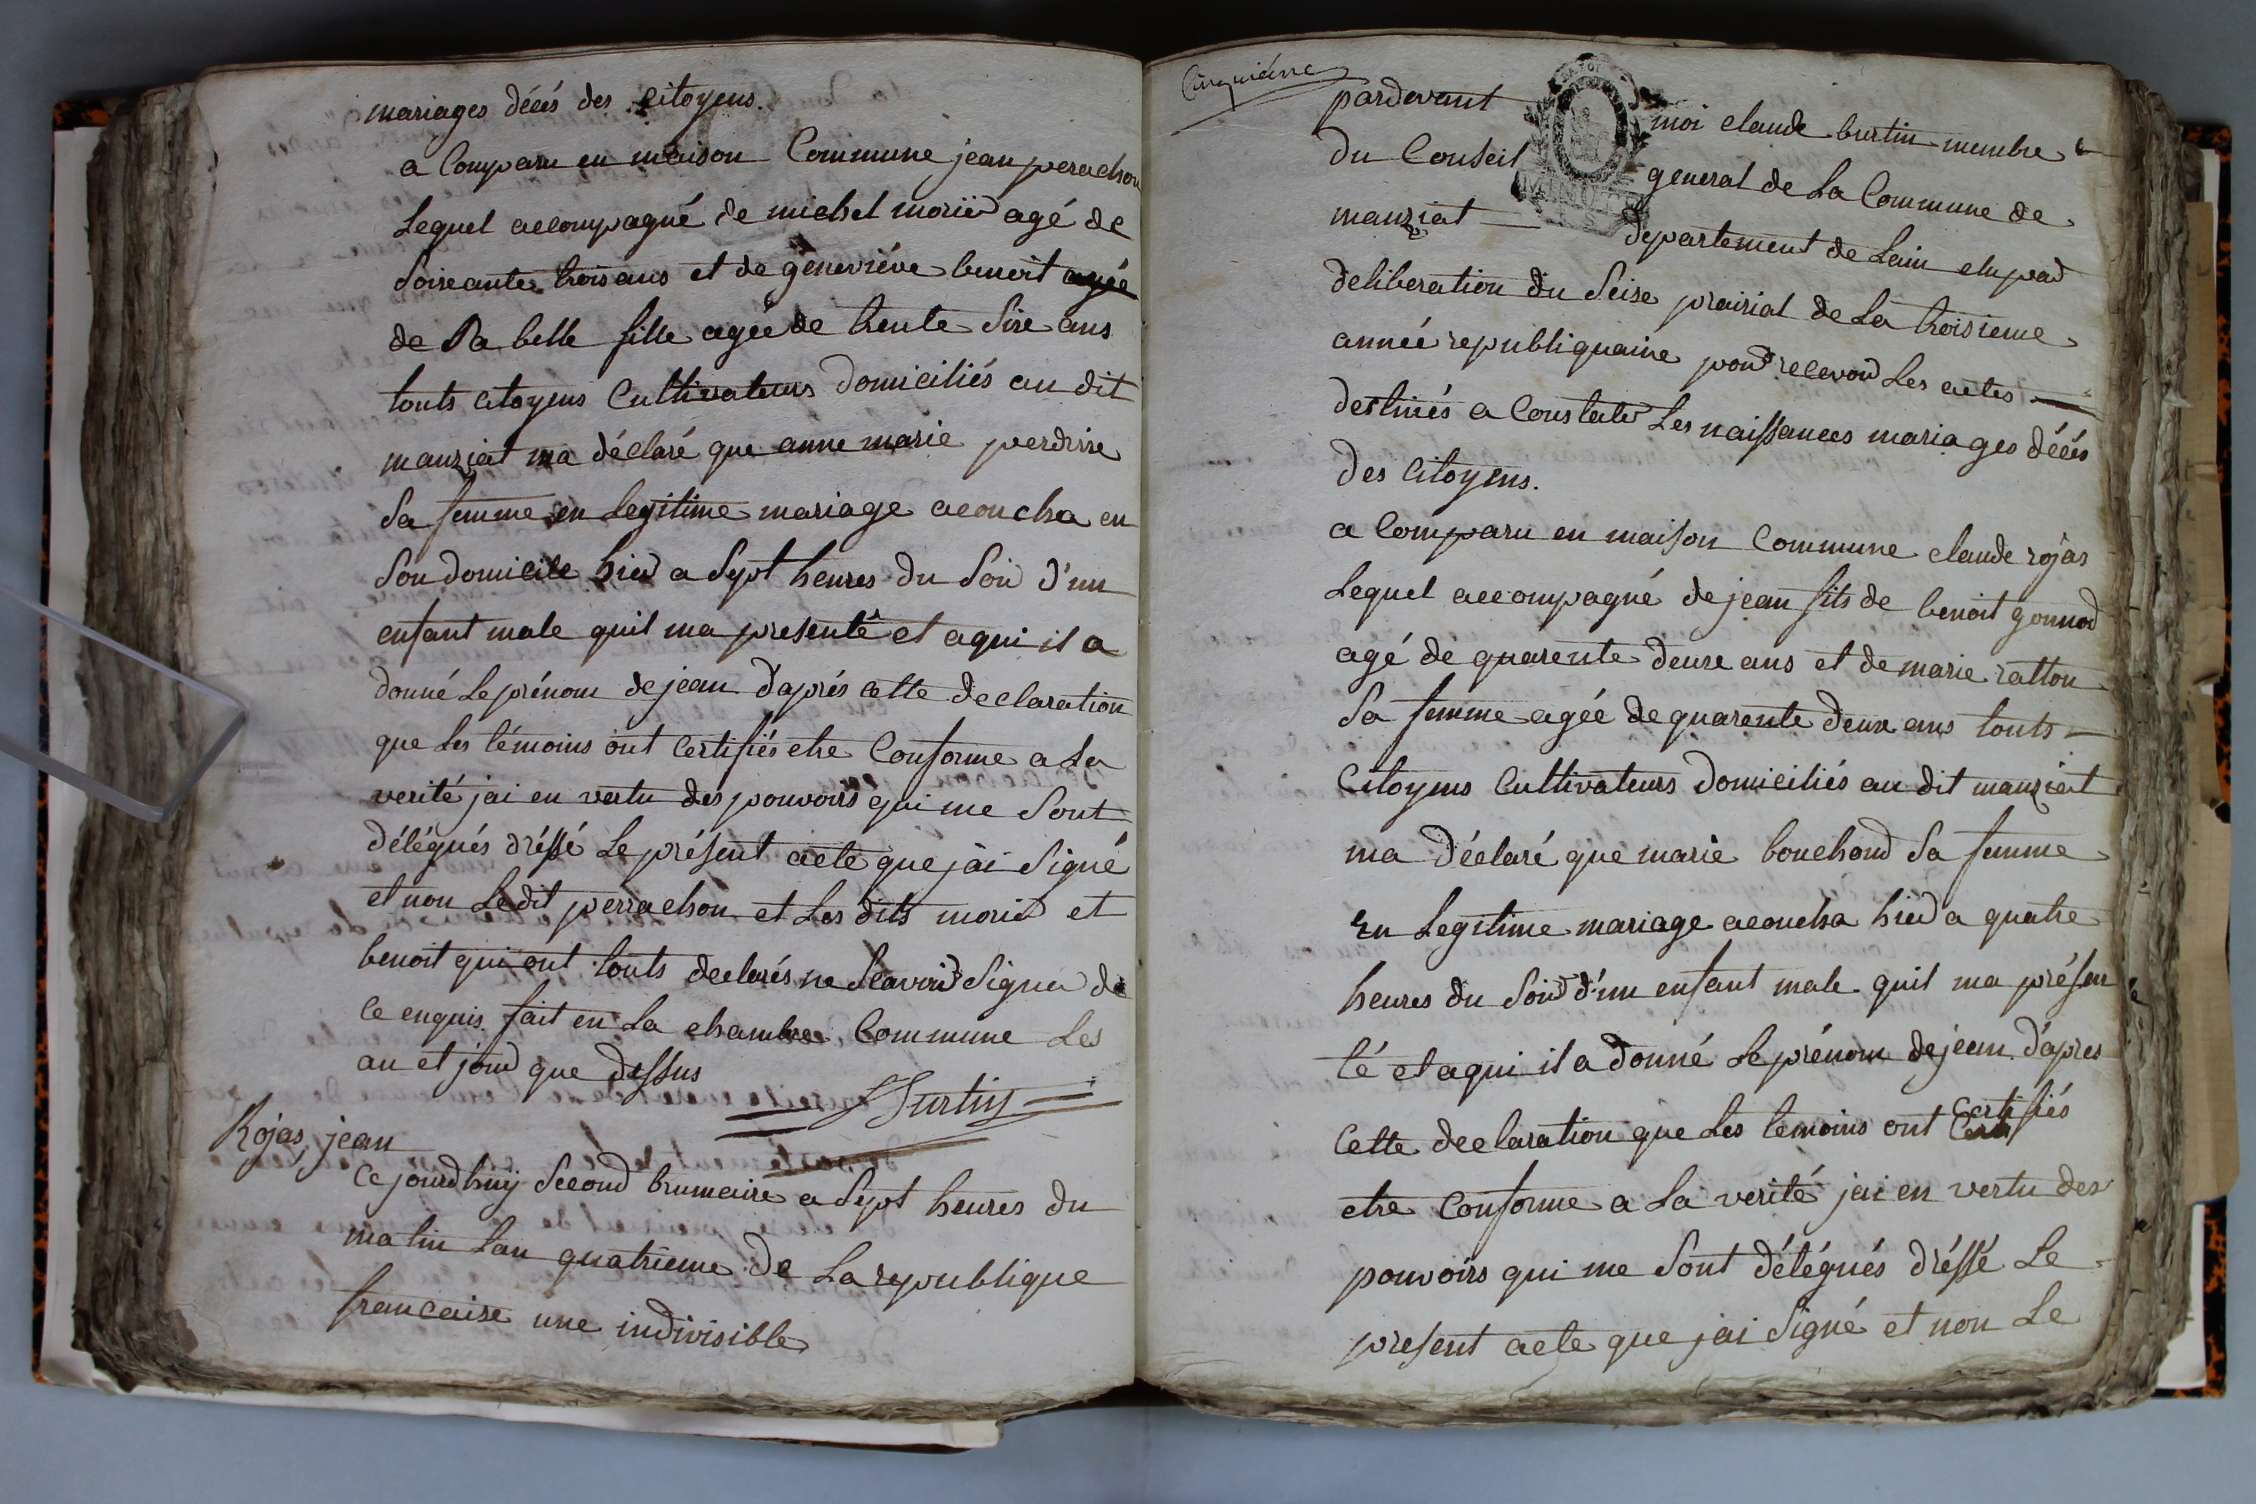 mariages décés des citoyens.
a Comparu en maison Commune jean perachon
Lequel accompagné de michel morir agé de
Soixante trois ans et de geneviéve benoit agée
de Sa belle fille agée de trente Sixe ans
touts citoyens Cultivateurs domiciliés au dit
manziat ma déclaré que anne marie perdrixe
Sa femme en legitime mariage acoucha en
Son domicile hier a Sept heures du Soir d'un
enfant male quil ma presenté et aqui il a
donné Le prénom de jean d'aprés cette declaration
que Les témoins ont certifiés etre Conforme a La
verité jai en vertu des pouvoirs qui me Sont
délégués dréssé Le présent acte que jai Signé
et non Ledit perrachon et Les dits morir et
benoit qui ont touts declarés ne Scavoir Signer de
Ce enquis. fait en La chambre Commune Les
an et jour que dessus
Burtin
Rojas, jean
Ce jourdhuy Second brumaire a Sept heures du
matin Lan quatrieme de La republique
francaise une indivisible
Cinquiéme
pardevant moi claude burtin membre
du Conseil general de La Commune de
MINUTE
manziat departement de Lain elu par
deliberation du Seise prairial de La troisieme
année republiquaine pour recevoir Les actes
destinés a Constater Les naissances mariages décés
des citoyens.
a Comparu en maison Commune claude rojas
Lequel accompagné de jean fils de benoit gonnod
agé de quarente deuxe ans et de marie ratton
Sa femme agée de quarente deux ans touts
Citoyens Cultivateurs domiciliés au dit manziat
ma déclaré que marie bouchard Sa femme
En Legitime mariage acoucha hier a quatre
heures du Soir d'un enfant male quil ma présen
té et aqui il a donné Le prénom de jean. d'apres
Cette declaration que Les temoins ont Certifiés
etre Conforme a La verité jai en vertu des
pouvoirs qui me Sont délégués dréssé Le
present acte que jai Signé et non Le